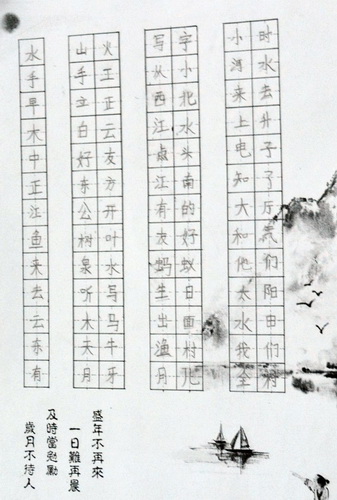 水
手
早
木
中
正
江
鱼
来
去
云
东
有
山火
手工
立正
白云
好友
东方
公开
树叶
泉水
听写
木马
天牛
月牙
写字
从小
西北
江水
点头
江南
有的
友好
蚂蚁
生日
出面
渔村
月儿
小时
河水
来去
上升
电子
知了
大厅
和
他们
太阳
水由
我们
全村
盛年不再來
一日難再晨
及時當勉勵
歲月不待人